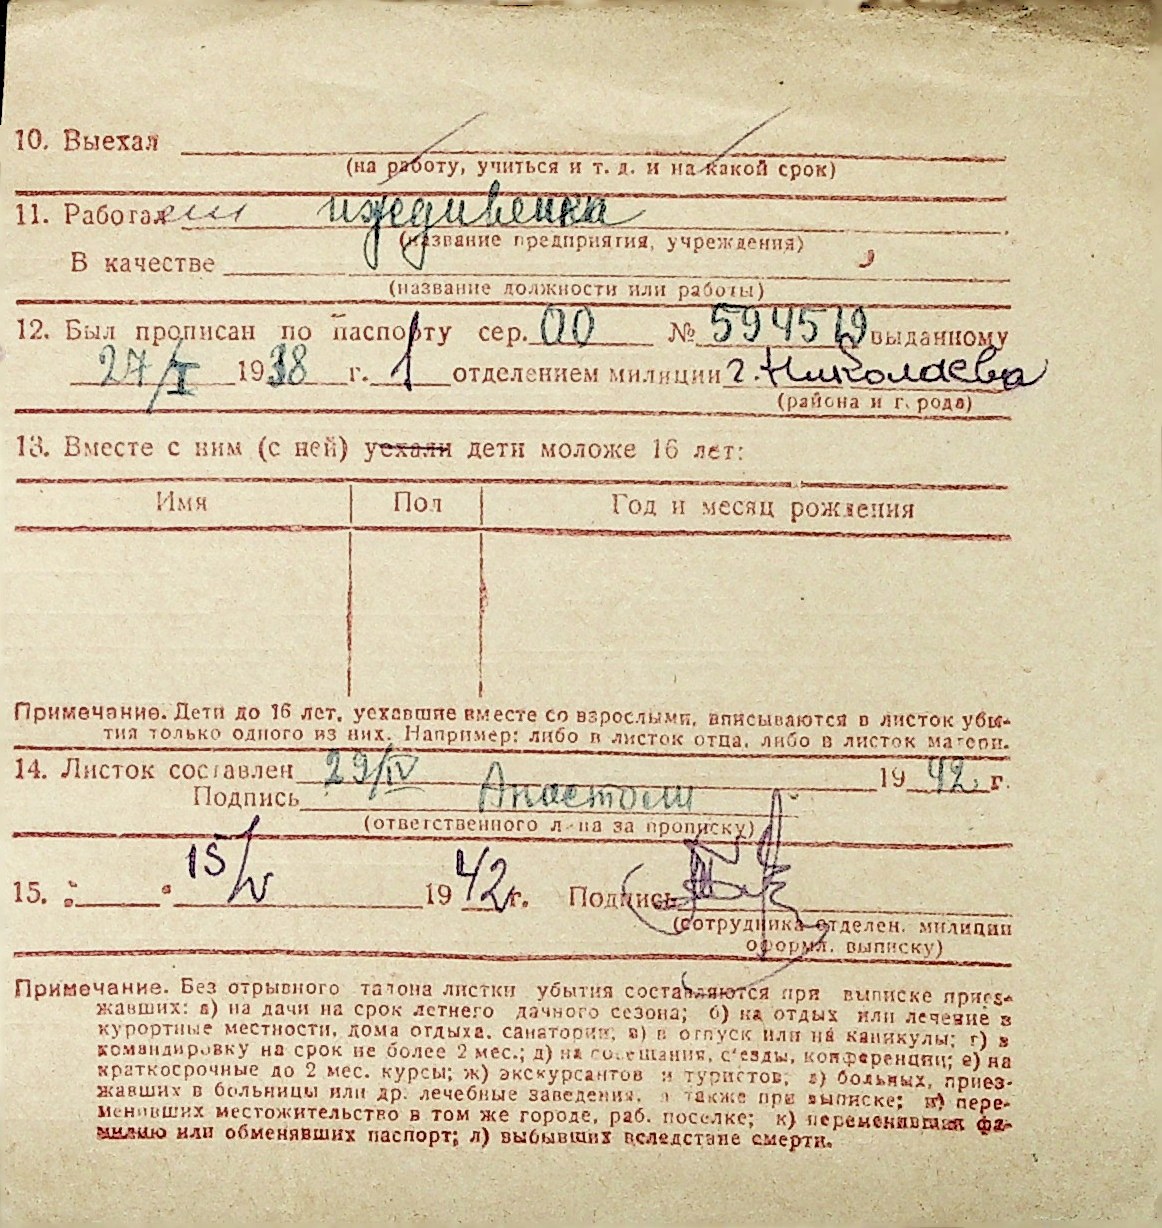 10. Выехал
(на работу, учиться и т. д. и на какой срок)
11. Работал иждивенка
(название предприятия, учреждения)
В качестве
(название должности или работы)
12. Был прописан по паспорту сер. ОО № 594519 выданному
27/I 1938 г. 1 отделением милиции г. Николаева
(района и города)
13. Вместе с ним (с ней) уехали дети моложе 16 лет:
Имя Пол Год и месяц рождения
Примечание. Дети до 16 лет, уехавшие вместе со взрослыми, вписываются в листок убы-
тия только одного из них. Например: либо в листок отца, либо в листок матери.
14. Листок составлен 29/IV 1942 г.
Подпись
(ответственного лица за прописку)
15. 15/V 1942 г. Подпись
(сотрудника отделен. милиции
оформл. выписку)
Примечание. Без отрывного талона листки убытия составляются при выписке приез-
жавших: а) на дачи на срок летнего дачного сезона; б) на отдых или лечение в
курортные местности, дома отдыха, санатории; в) в отпуск или на каникулы; г) в
командировку на срок не более 2 мес.; д) на совещания, с'езды, конференции; е) на
краткосрочные до 2 мес. курсы; ж) экскурсантов и туристов; з) больных, приез-
жавших в больницы или др. лечебные заведения, а также при выписке; и) пере-
менивших местожительство в том же городе, раб. поселке; к) переменивших фа-
милию или обменявших паспорт; л) выбывших вследствие смерти.